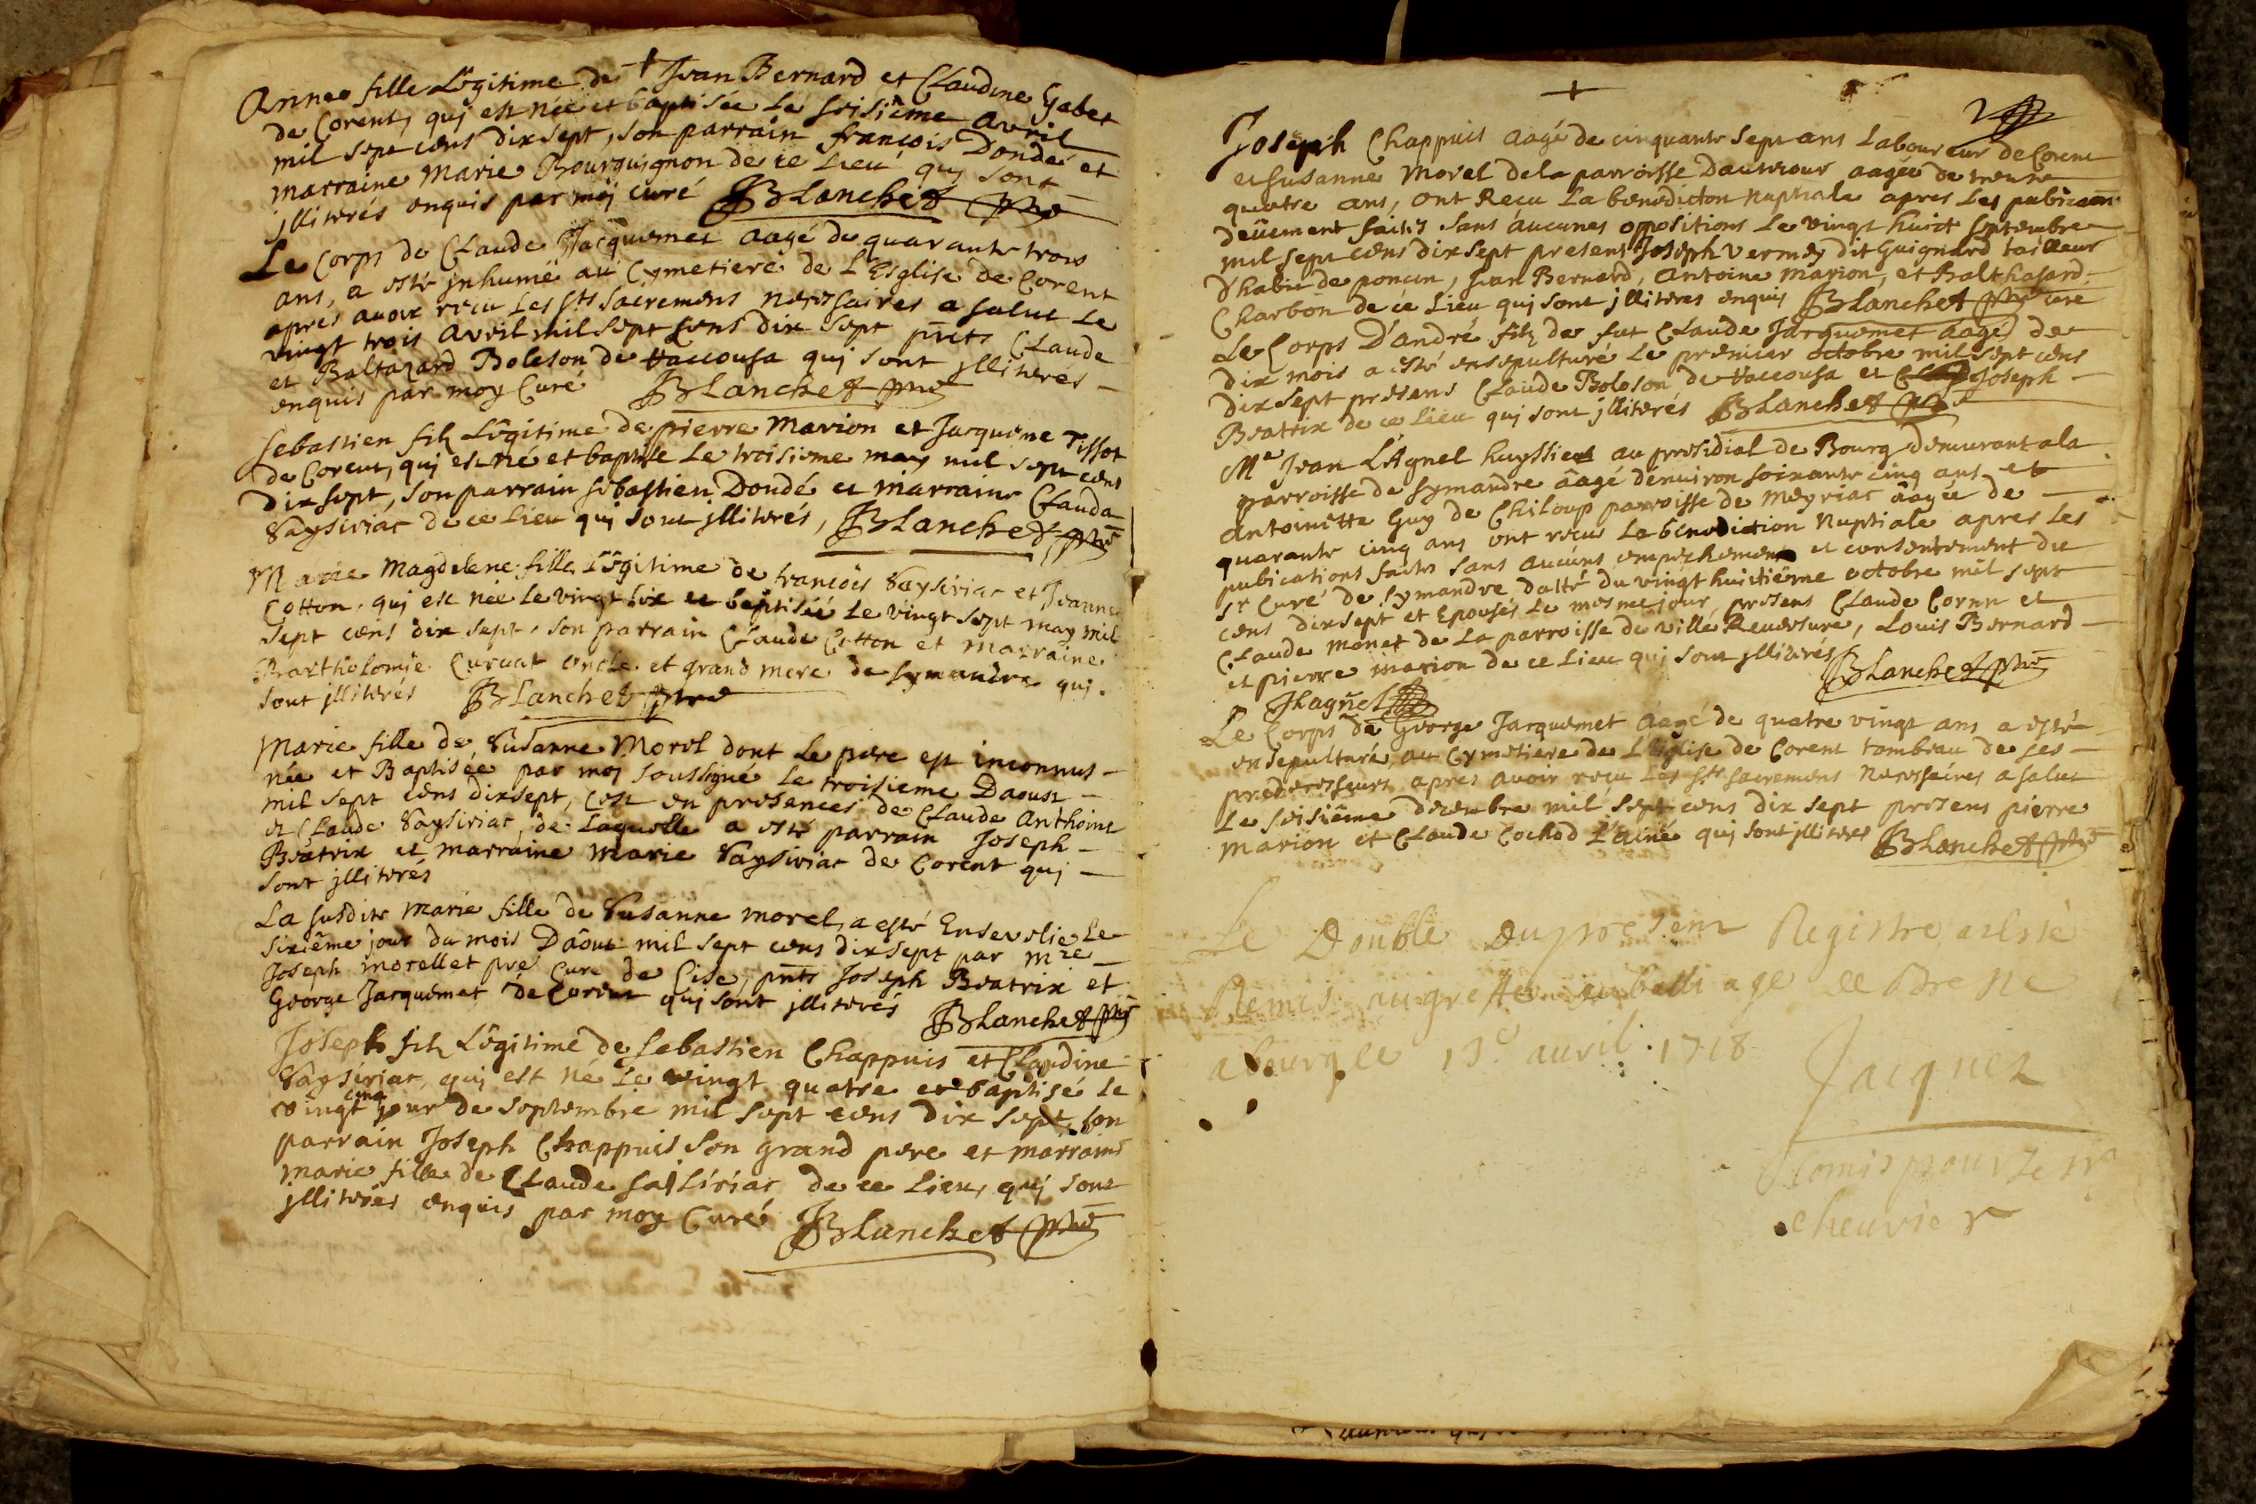 Anne fille Lêgitime de Jean Bernard et Claudine Gabet
de Corent, quj est née et baptisée Le seisiême avril
mil sept cens dix sept, son parrain françois Dondé et
marraine Marie Bourguignon de ce Lieu quj sont
jlliterés enquis par moj curé JBLanchet ptre
Le Corps de CLaude Jacquemet aagé de quarante trois
ans, a esté jnhumé au Cymetiere de L'Esglise de Corent
apres auoir reçu Les sts sacremens necessaires a salut Le
vingt trois avril mil sept cens dix sept pnts CLaude
et Baltazard Boleson de Haccousa quj sont jlliterés
enquis par moy Curé JBLanchet ptre
sebastien filz Lêgitime de pierre Marion et Jacquême Tissot
de Corent, quj est né et baptisé Le troisieme may mil sept cens
dix sept, son parrain sebastien Dondé et marraine CLauda
Vaysiriat de ce Lieu quj sont jlliterés, JBLanchet ptre
Marie Magdelene fille Lêgitime de francois Vaysiriat et Jeanne
Cotton, quj est née Le vingt six et baptisée Le vingt sept may mil
sept cens dix sept, son parrain CLaude Cotton et marraine
Bartholomie Curuat oncle et grand mere de symandre quj
sont jlliterés JBLanchet ptre
Marie fille de Susanne Morel dont Le pere est inconnus
née et Baptisée par moj soussigné Le troisieme Daoust
mil sept cens dix sept, cest en presences de CLaude Anthoine
et CLaude Vaysiriat, de Laquelle a esté parrain Joseph
Beatrix et marraine Marie Vaysiriat de Corent quj
sont jlliterés
La susdite Marie fille de Susanne Morel, a esté Ensevelie Le
sixiême jour du mois Daôut mil sept cens dix sept par Mre
Joseph Morellet pre Curé de Cise, pnts Joseph Beatrix et
George Jacquemet de Corent quj sont jlliterés JBLanchet ptre
Joseph filz Lêgitime de sebastien Chappuis et CLaudine
Vaysiriat, quj est né Le vingt quatre et baptisé Le
vingt cinq jour de septembre mil sept cens dix sept, son
parrain Joseph Chappuis son grand pere et marraine
marie fille de CLaude saisiriat de ce Lieu, quj sont
jlliterés enquis par moy Curé JBLanchet ptre
2
Joseph Chappuis aagé de cinquante sept ans Laboureur de Corent
et susanne Morel de la parroisse aagée de trente
quatre ans, ont Reçu La benediction nuptiale apres Les
deüement faites sans aucunes oppositions Le vingt huict septembre
mil sept cens dix sept present Joseph Vermey dit Guignard tailleur
d'habit de poncin, Jean Bernard, Antoine Marion, et Balthasard
Charbon de ce Lieu quj sont jlliteres enquis JBLanchet ptre curé
Le Corps D'andré filz de fut CLaude Jacquemet aagé de
dix mois a esté ensepulturé Le premier octobre mil sept cens
dix sept presens CLaude Boleson de Haccousa et Joseph
Beatrix de ce Lieu quj sont jlliterés JBLanchet ptre
Me Jean L'Agnel huyssier au presidial de Bourg demeurant a la
parroisse de symandre âagé d'enuiron soixante cinq ans et
Antoinêtte Guy de Chiloup parroisse de Meyriat âagée de
quarante cinq ans ont reçu La benediction Nuptiale apres Les
publications faites sans aucuns empechemens et consentement du
sr Curé de symandre datté du vingt huictiême octobre mil sept
cens dix sept et Epousés Le mesme jour, presens CLaude Cornu et
CLaude Monet de La parroisse de Ville Reuersure, Louis Bernard
et pierre Marion de ce Lieu quj sont jlliterés JBLanchet ptre
Jlagnel
Le Corps de George Jacquemet âagé de quatre vingt ans a esté
ensepulturé au Cymetiere de L'Eglise de Corent tombeau de ses
predecesseurs apres avoir reçu Les sts sacremens Necessaires a salut
Le seisiême decembre mil sept cens dix sept presens pierre
Marion et CLaude Cochod L'ainé quj sont jlliteres JBLanchet ptre
Le Double du present Registre a esté
Remis au greffe du balliage de Bresse
a bourg le 13e auril 1718
Jacquet
Comis pour le sr
cheuvier